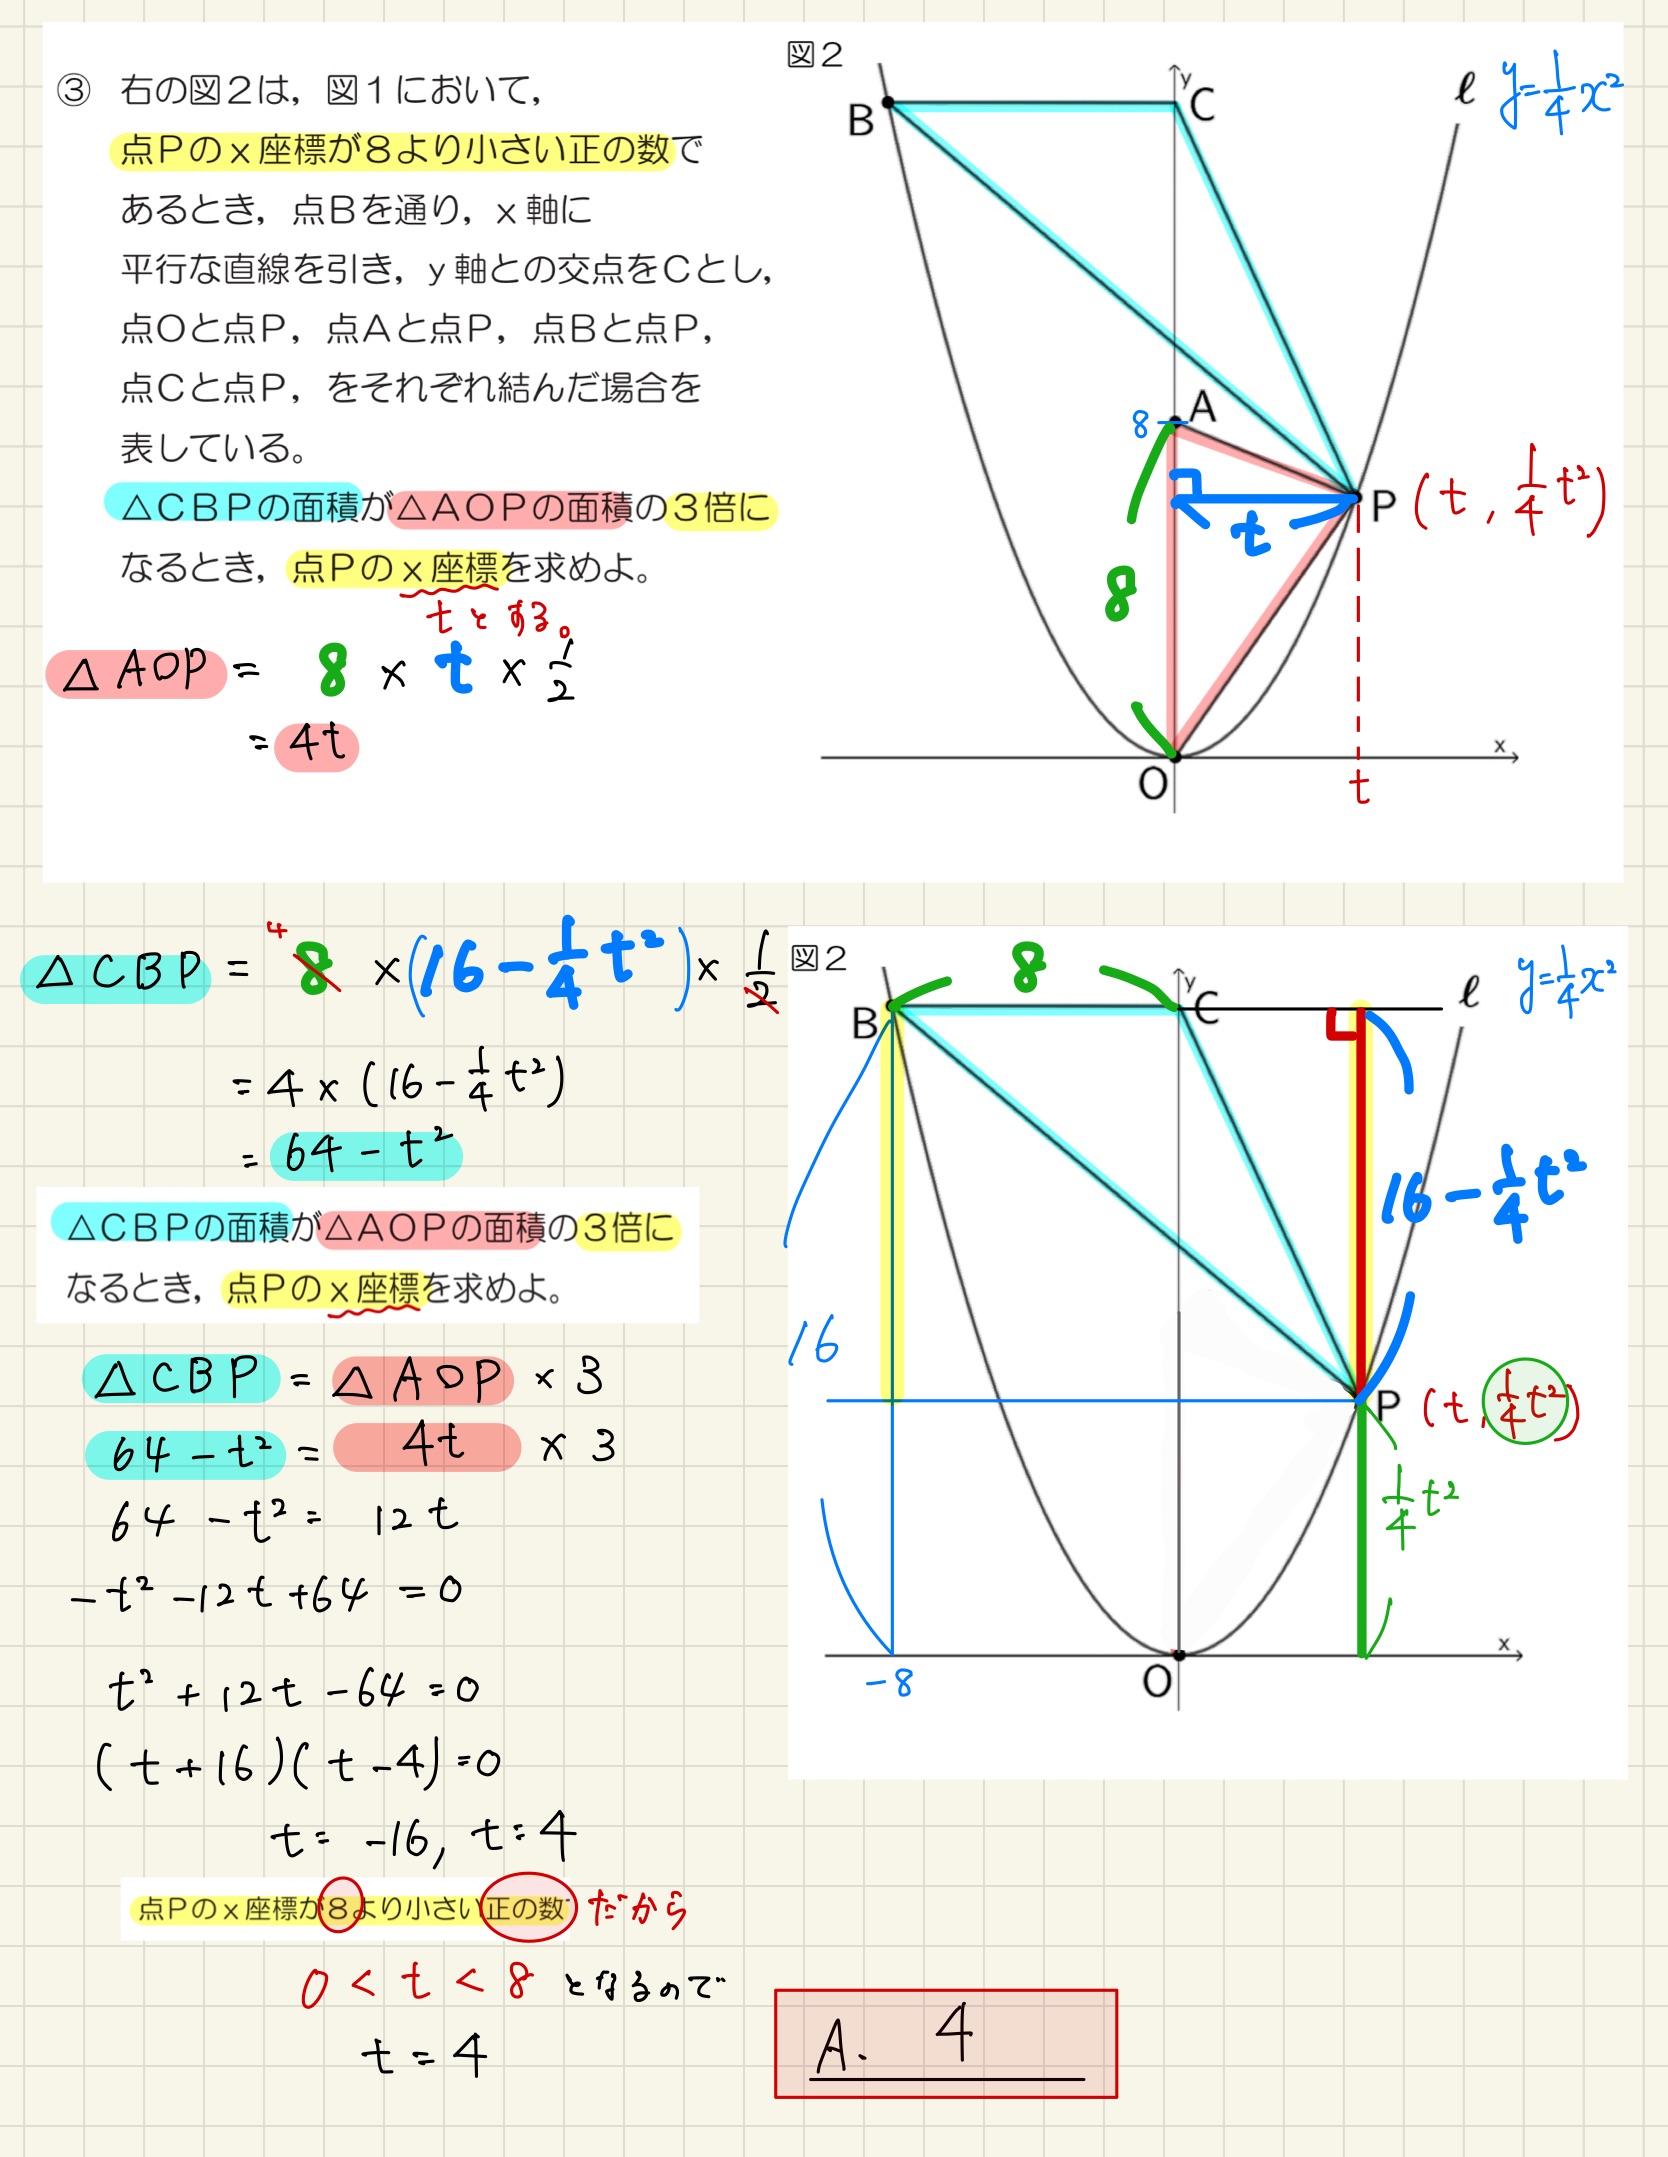 図2
③ 右の図2は，図1において，
点Pのx座標が8より小さい正の数で
あるとき，点Bを通り，x軸に
平行な直線を引き，y軸との交点をCとし，
点Oと点P，点Aと点P，点Bと点P，
点Cと点P，をそれぞれ結んだ場合を
表している。
△CBPの面積が△AOPの面積の3倍に
なるとき，点Pのx座標を求めよ。
tとする。
△AOP = 8 × t × 1/2
= 4t
y
B
C
ℓ
y=1/4x²
8
A
P (t, 1/4t²)
t
8
x
O
t
△CBP = 8 × (16 - 1/4t²) × 1/2
4
= 4 × (16 - 1/4t²)
= 64 - t²
△CBPの面積が△AOPの面積の3倍に
なるとき，点Pのx座標を求めよ。
△CBP = △AOP × 3
64 - t² = 4t × 3
64 - t² = 12t
-t² -12t +64 = 0
t² + 12t - 64 = 0
(t+16)(t-4)=0
t= -16, t=4
点Pのx座標が8より小さい正の数だから
0 < t < 8 となるので
t = 4
A. 4
図2
8
y
B
C
ℓ
y=1/4x²
16 - 1/4t²
16
P (t, 1/4t²)
1/4t²
x
-8
O